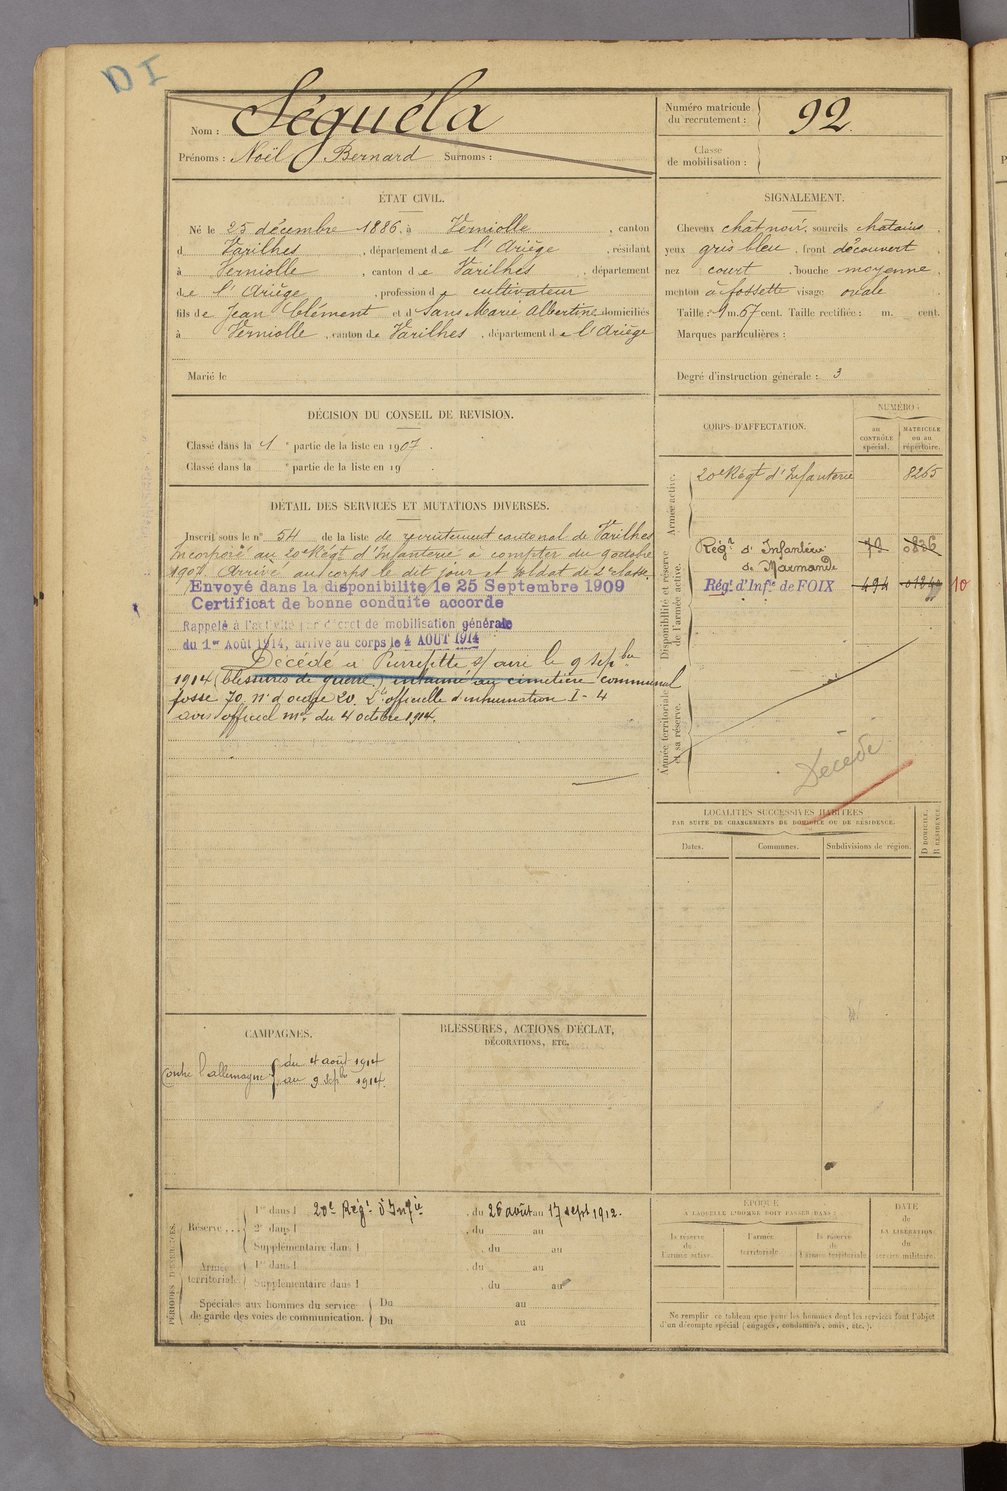 DI
Nom : Séguéla
Prénoms : Noël Bernard Surnoms :
Numéro matricule du recrutement : 92
Classe de mobilisation :
ÉTAT CIVIL.
Né le 25 décembre 1886, à Verniolle, canton
d Varilhes, département de l'Ariège, résidant
à Verniolle, canton de Varilhes, département
de l'Ariège, profession de cultivateur
fils de Jean Clément et d Sans Marie Albertine domiciliés
à Verniolle, canton de Varilhes, département de l'Ariège
Marié le
SIGNALEMENT.
Cheveux chat noir, sourcils chatains,
yeux gris bleu, front découvert,
nez court, bouche moyenne,
menton à fossette visage ovale
Taille : 1 m. 67 cent. Taille rectifiée : m. cent.
Marques particulières :
Degré d'instruction générale : 3
DÉCISION DU CONSEIL DE REVISION.
Classé dans la 1e partie de la liste en 1907.
Classé dans la e partie de la liste en 19 .
DÉTAIL DES SERVICES ET MUTATIONS DIVERSES.
Inscrit sous le n° 54 de la liste de recrutement cantonal de Varilhes
Incorporé au 20e Régt d'Infanterie à compter du 9 octobre
1907. Arrivé au corps le dit jour et soldat de 2e classe.
Envoyé dans la disponibilité le 25 Septembre 1909
Certificat de bonne conduite accordé
Rappelé à l'activité par décret de mobilisation générale
du 1er Août 1914, arrivé au corps le 4 AOUT 1914
Décédé à Pierrefitte s/ aire le 9 Sepbre
1914 (blessures de guerre) inhumé au cimetière communal
fosse 70, n° d'ordre 20. officielle d'inhumation I-4
avis officiel du 4 octobre 1914.
CORPS D'AFFECTATION.
NUMÉRO :
au CONTRÔLE spécial.
MATRICULE ou au répertoire.
Armée active.
20e Régt d'Infanterie 8265
Disponibilité et réserve de l'armée active.
Régt d'Infanterie de Marmande 79 0826
Régt d'Infie de FOIX 494 10
Armée territoriale et sa réserve.
Décédé
LOCALITÉS SUCCESSIVES HABITÉES
PAR SUITE DE CHANGEMENTS DE DOMICILE OU DE RÉSIDENCE.
Dates. Communes. Subdivisions de région. D DOMICILE. R RÉSIDENCE.
CAMPAGNES.
Contre l'allemagne du 4 août 1914
au 9 sepbre 1914.
BLESSURES, ACTIONS D'ÉCLAT,
DÉCORATIONS, ETC.
PÉRIODES D'EXERCICES.
Réserve . . . 1re dans l 20e Régt d'Infie, du 26 août au 17 sept 1912.
2e dans l , du au
Supplémentaire dans l , du au
Armée territoriale 1re dans l , du au
Supplémentaire dans l , du au
Spéciales aux hommes du service de garde des voies de communication. Du au
Du au
ÉPOQUE
À LAQUELLE L'HOMME DOIT PASSER DANS :
la réserve de l'armée active. l'armée territoriale. la réserve de l'armée territoriale.
DATE de LA LIBÉRATION du service militaire.
Ne remplir ce tableau que pour les hommes dont les services font l'objet
d'un décompte spécial (engagés, condamnés, omis, etc.).